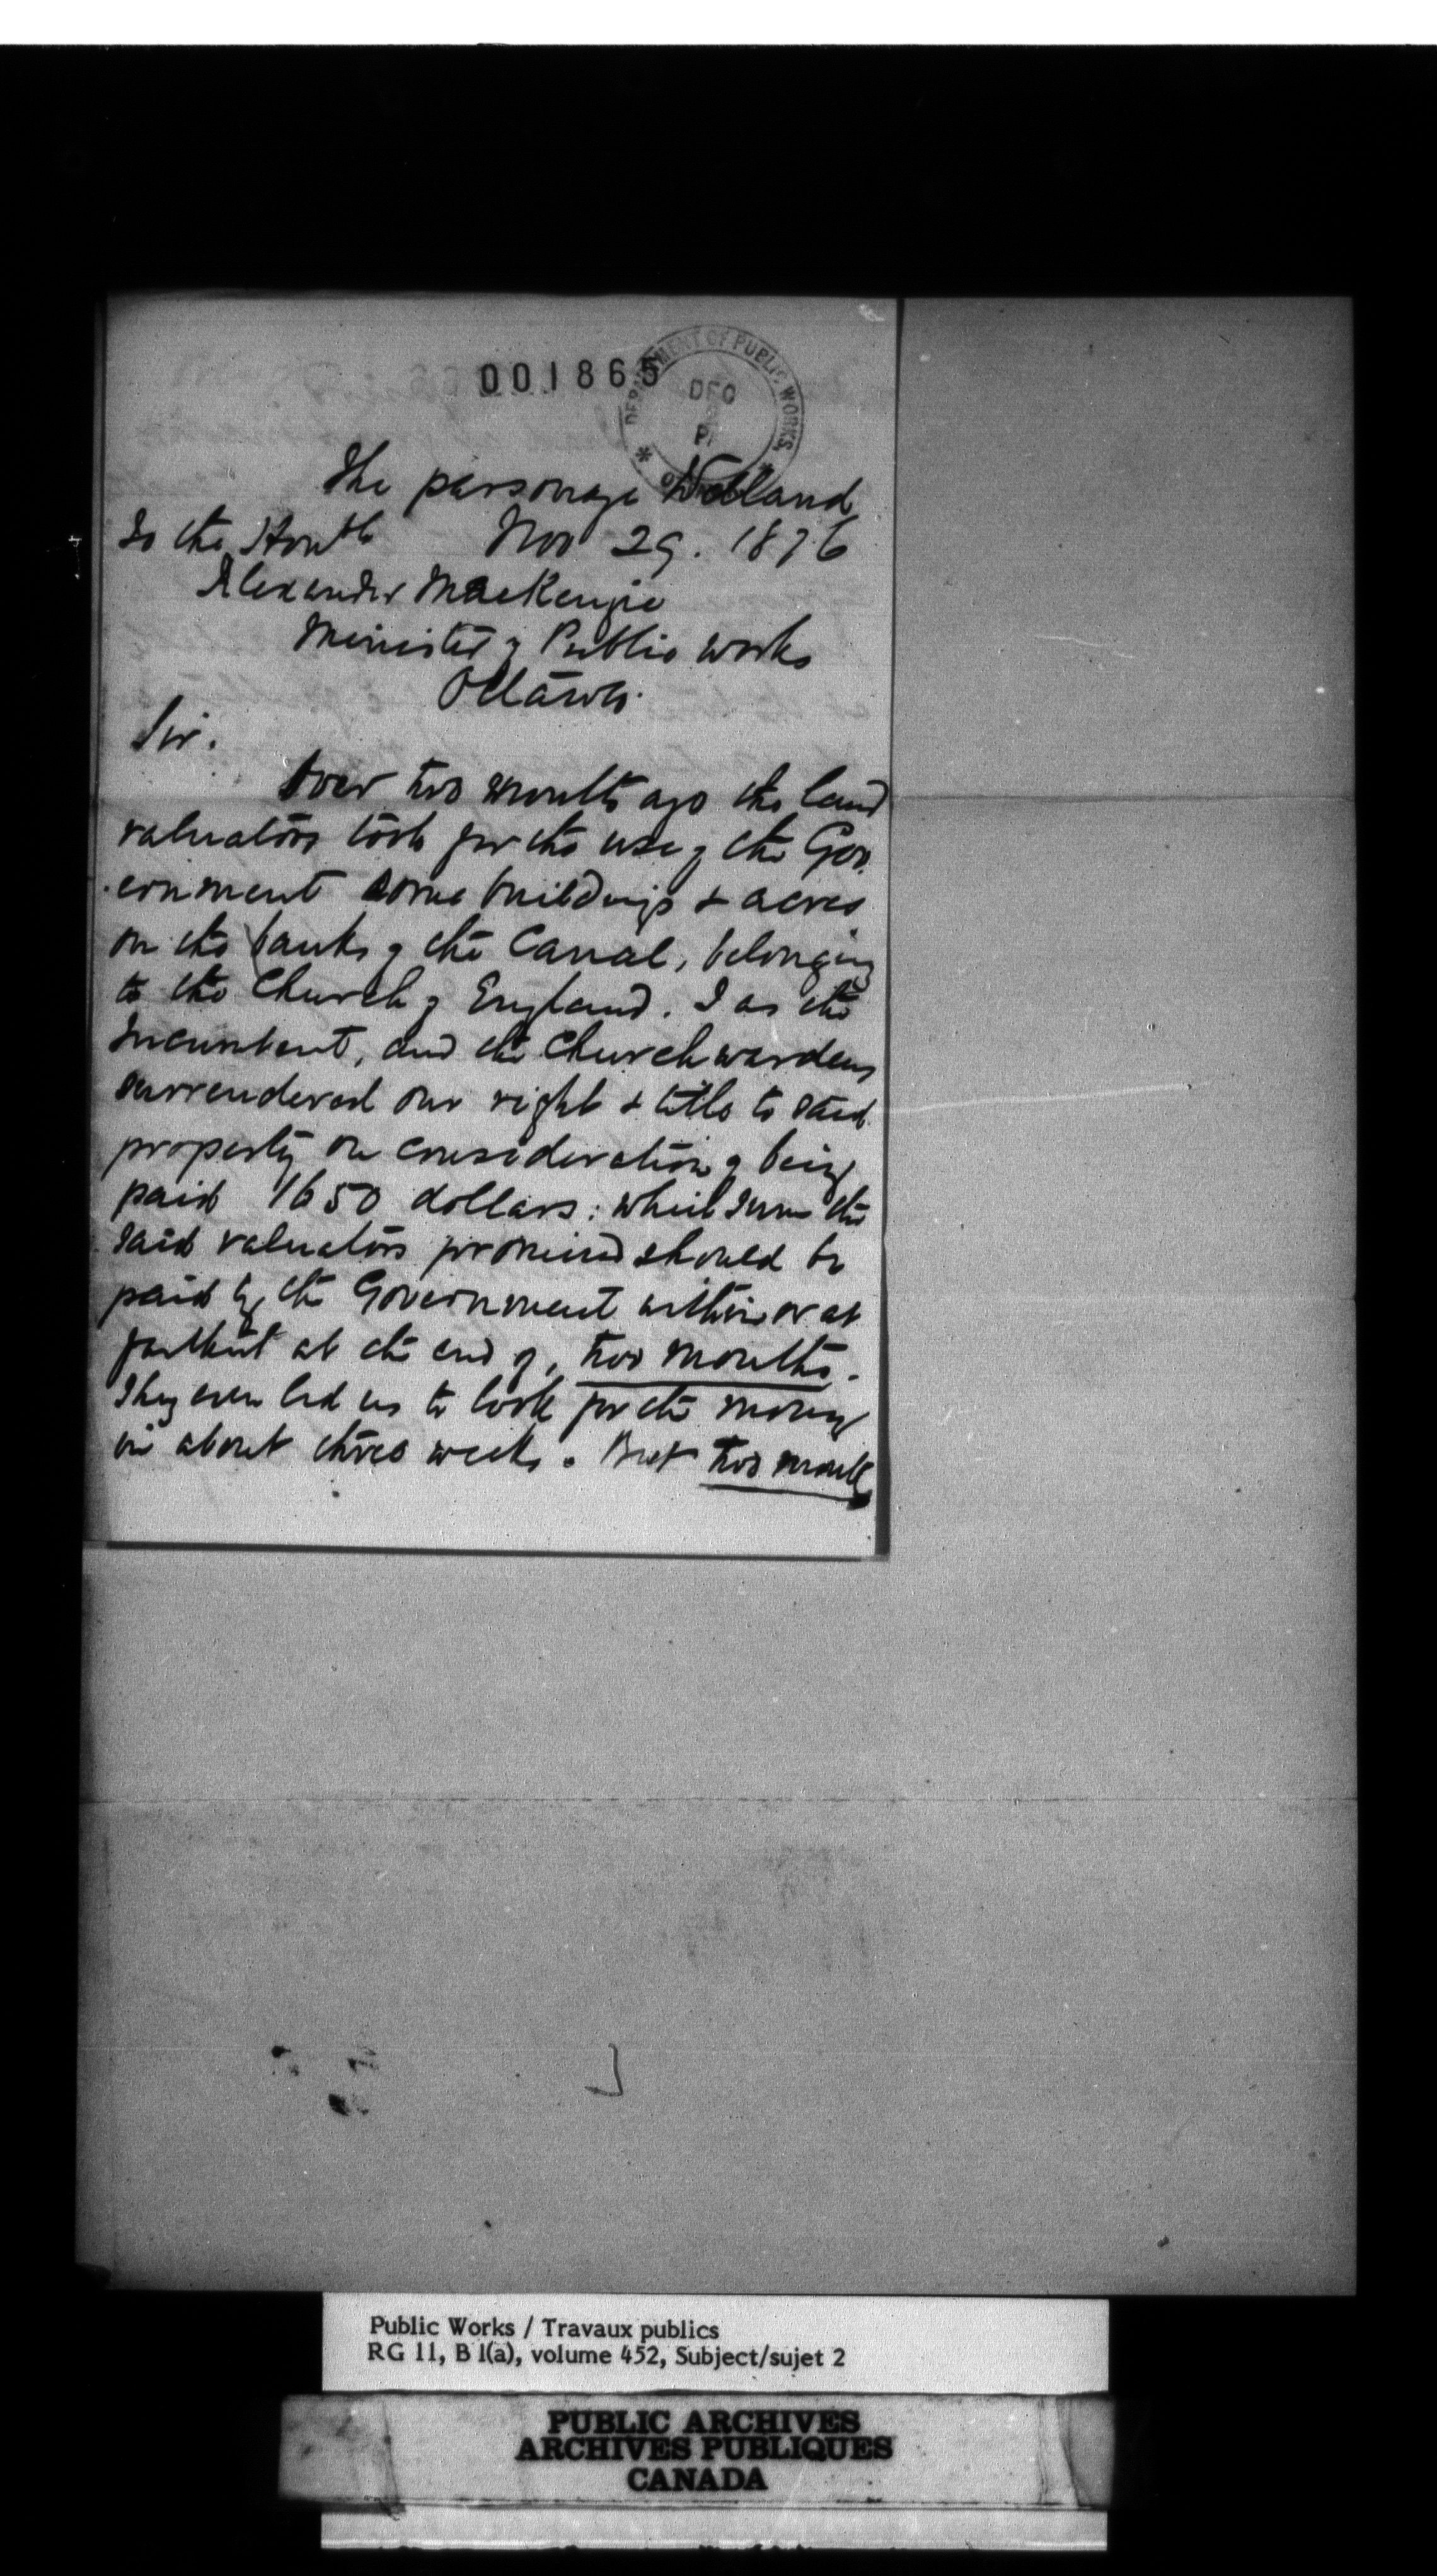 001865
DEPARTMENT OF PUBLIC WORKS
DEC
The parsonage Welland
To the Honble Nov 29. 1876
Alexander MacKenzie
Minister of Public Works
Ottawa.
Sir.
Over two months ago the land
valuators took for the use of the Gov
ernment some buildings & acres
on the banks of the Canal, belonging
to the Church of England. I as the
Incumbent, and the Churchwardens
surrendered our right & title to said
property on consideration of being
paid 1650 dollars: which sum the
said valuators promised should be
paid by the Government within or at
farthest at the end of, two months.
They even led us to look for the money
in about three weeks. But two months
Public Works / Travaux publics
RG 11, B 1(a), volume 452, Subject/sujet 2
PUBLIC ARCHIVES
ARCHIVES PUBLIQUES
CANADA